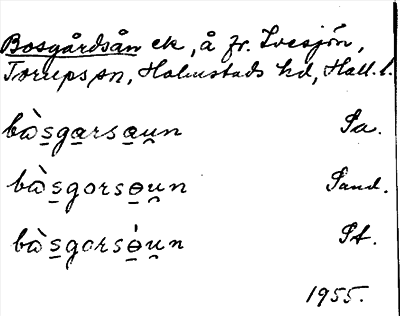 Bosgårdsån ek, å fr. Ivesjön,
Torups sn, Halmstads hd, Hall. l.
bàs̲ga̲rsa̲u̯n Sa.
bàs̲gorsɵ̲u̯n Sand.
bàs̲gorsɵ̲́u̯n St.
1955.